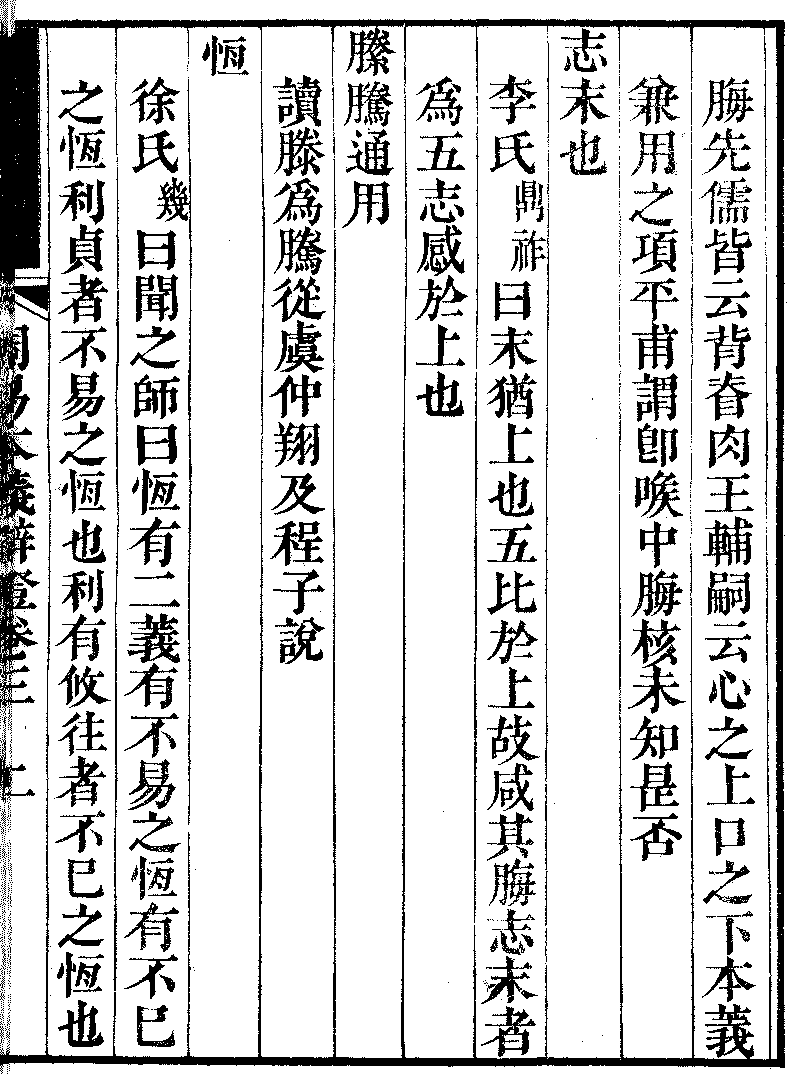 脢先儒皆云背眘肉王輔嗣云心之上口之下本義
兼用之項平甫謂卽喉中脢核未知昰否
志末也
李氏鼎祚曰末猶上也五比於上故咸其脢志末者
爲五志感於上也
縢騰通用
讀縢爲騰從虞仲翔及程子說
恆
徐氏幾曰聞之師曰恆有二義有不易之恆有不巳
之恆利貞者不易之恆也利有攸往者不巳之恆也
周易本義辯證卷三 二